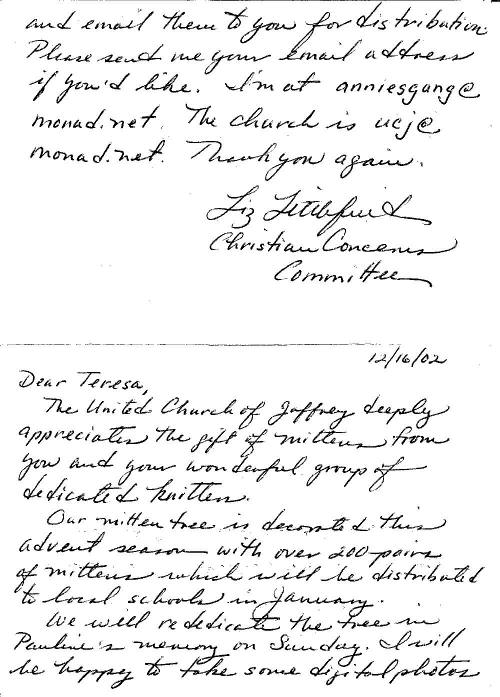 and email them to you for distribution.
Please send me your email address
if you'd like. I'm at anniesgang@
monad.net. The church is ucj@
monad.net. Thank you again.
Liz Littlefield
Christian Concerns
Committee
12/16/02
Dear Teresa,
The United Church of Jaffrey deeply
appreciates the gift of mittens from
you and your wonderful group of
dedicated knitters.
Our mitten tree is decorated this
advent season with over 200 pairs
of mittens which will be distributed
to local schools in January.
We will rededicate the tree in
Pauline's memory on Sunday. I will
be happy to take some digital photos